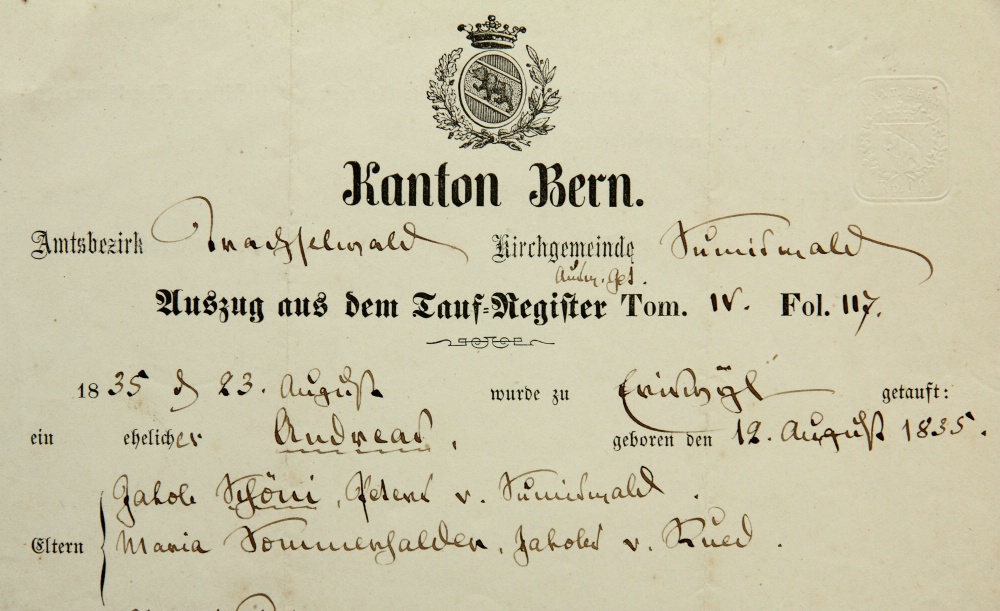 Kanton Bern.
Amtsbezirk Trachselwald Kirchgemeinde Sumiswald
Ausw. Get.
Auszug aus dem Tauf-Register Tom. IV. Fol. 117.
1835 d 23. August wurde zu Eriswyl getauft:
ein ehelicher Andreas, geboren den 12. August 1835.
Jakob Schöni, Peters v. Sumiswald.
Eltern Maria Sommerhalder, Jakobs v. Rued.